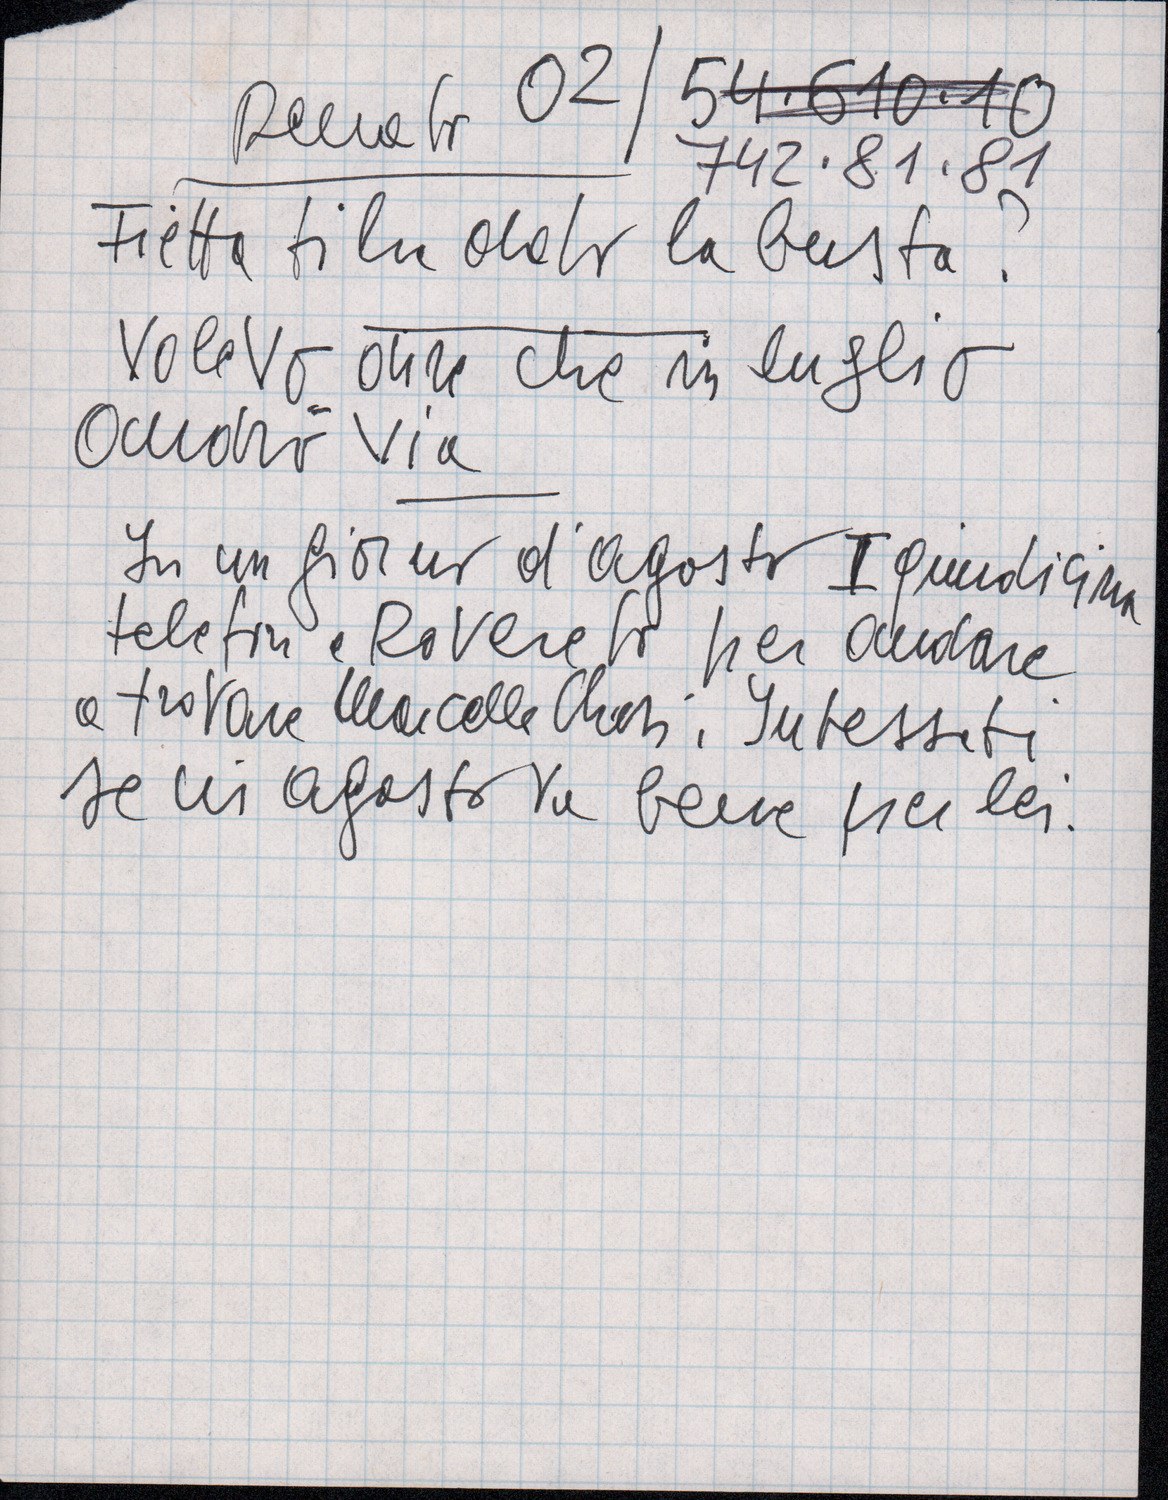 Renato 02/54.610.10
742.81.81
Fietta ti ha dato la busta?
Volevo dire che in luglio
andrò via
In un giorno d'agosto I quindicina
telefon a Rovereto per andare
a trovare Marcella Chesi. Interessati
se in agosto va bene per lei.